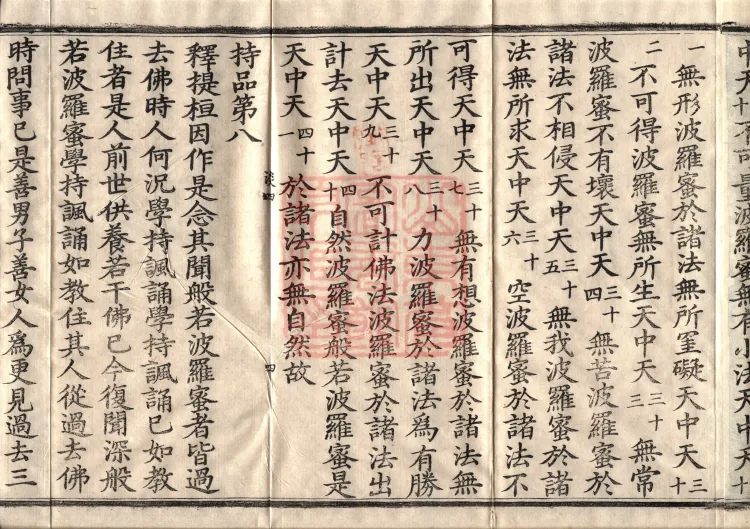 波羅蜜無有小法天中天
一無形波羅蜜於諸法無所罣礙天中天三十
二不可得波羅蜜無所生天中天三十三無常
波羅蜜不有壞天中天三十四無苦波羅蜜於
諸法不相侵天中天三十五無我波羅蜜於諸
法無所求天中天三十六空波羅蜜於諸法不
可得天中天三十七無有想波羅蜜於諸法無
所出天中天三十八力波羅蜜於諸法爲有勝
天中天三十九不可計佛法波羅蜜於諸法出
計去天中天四十自然波羅蜜般若波羅蜜是
天中天四十一於諸法亦無自然故
四
持品第八
釋提桓因作是念其聞般若波羅蜜者皆過
去佛時人何況學持諷誦學持諷誦已如教
住者是人前世供養若干佛已今復聞深般
若波羅蜜學持諷誦如教住其人從過去佛
時問事已是善男子善女人爲更見過去三